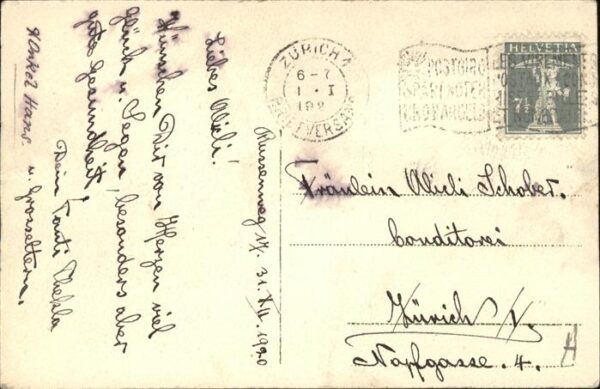 Russenweg 17. 31. XII. 1920
Liebes Alicli!
Wünschen Dir von Herzen viel
Glück u. Segen, besonders aber
gute Gesundheit,
Dein Tanti Thekla
Onkel Hans. u. Grosseltern.
ZÜRICH 1
6-7
1. I
192
BRIEFVERSAND
POSTGIRO
SPART NOTEN
HELVETIA
7½
Fräulein Alicli Schober.
Conditorei
Zürich 1.
Napfgasse. 4.